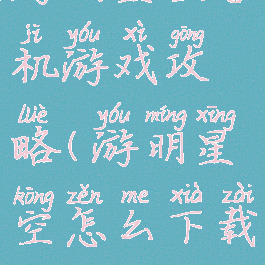 jī yóu xì gōng
机游戏攻
lüè yóu míng xīng
略(游明星
kōng zěn me xià zài
空怎么下载